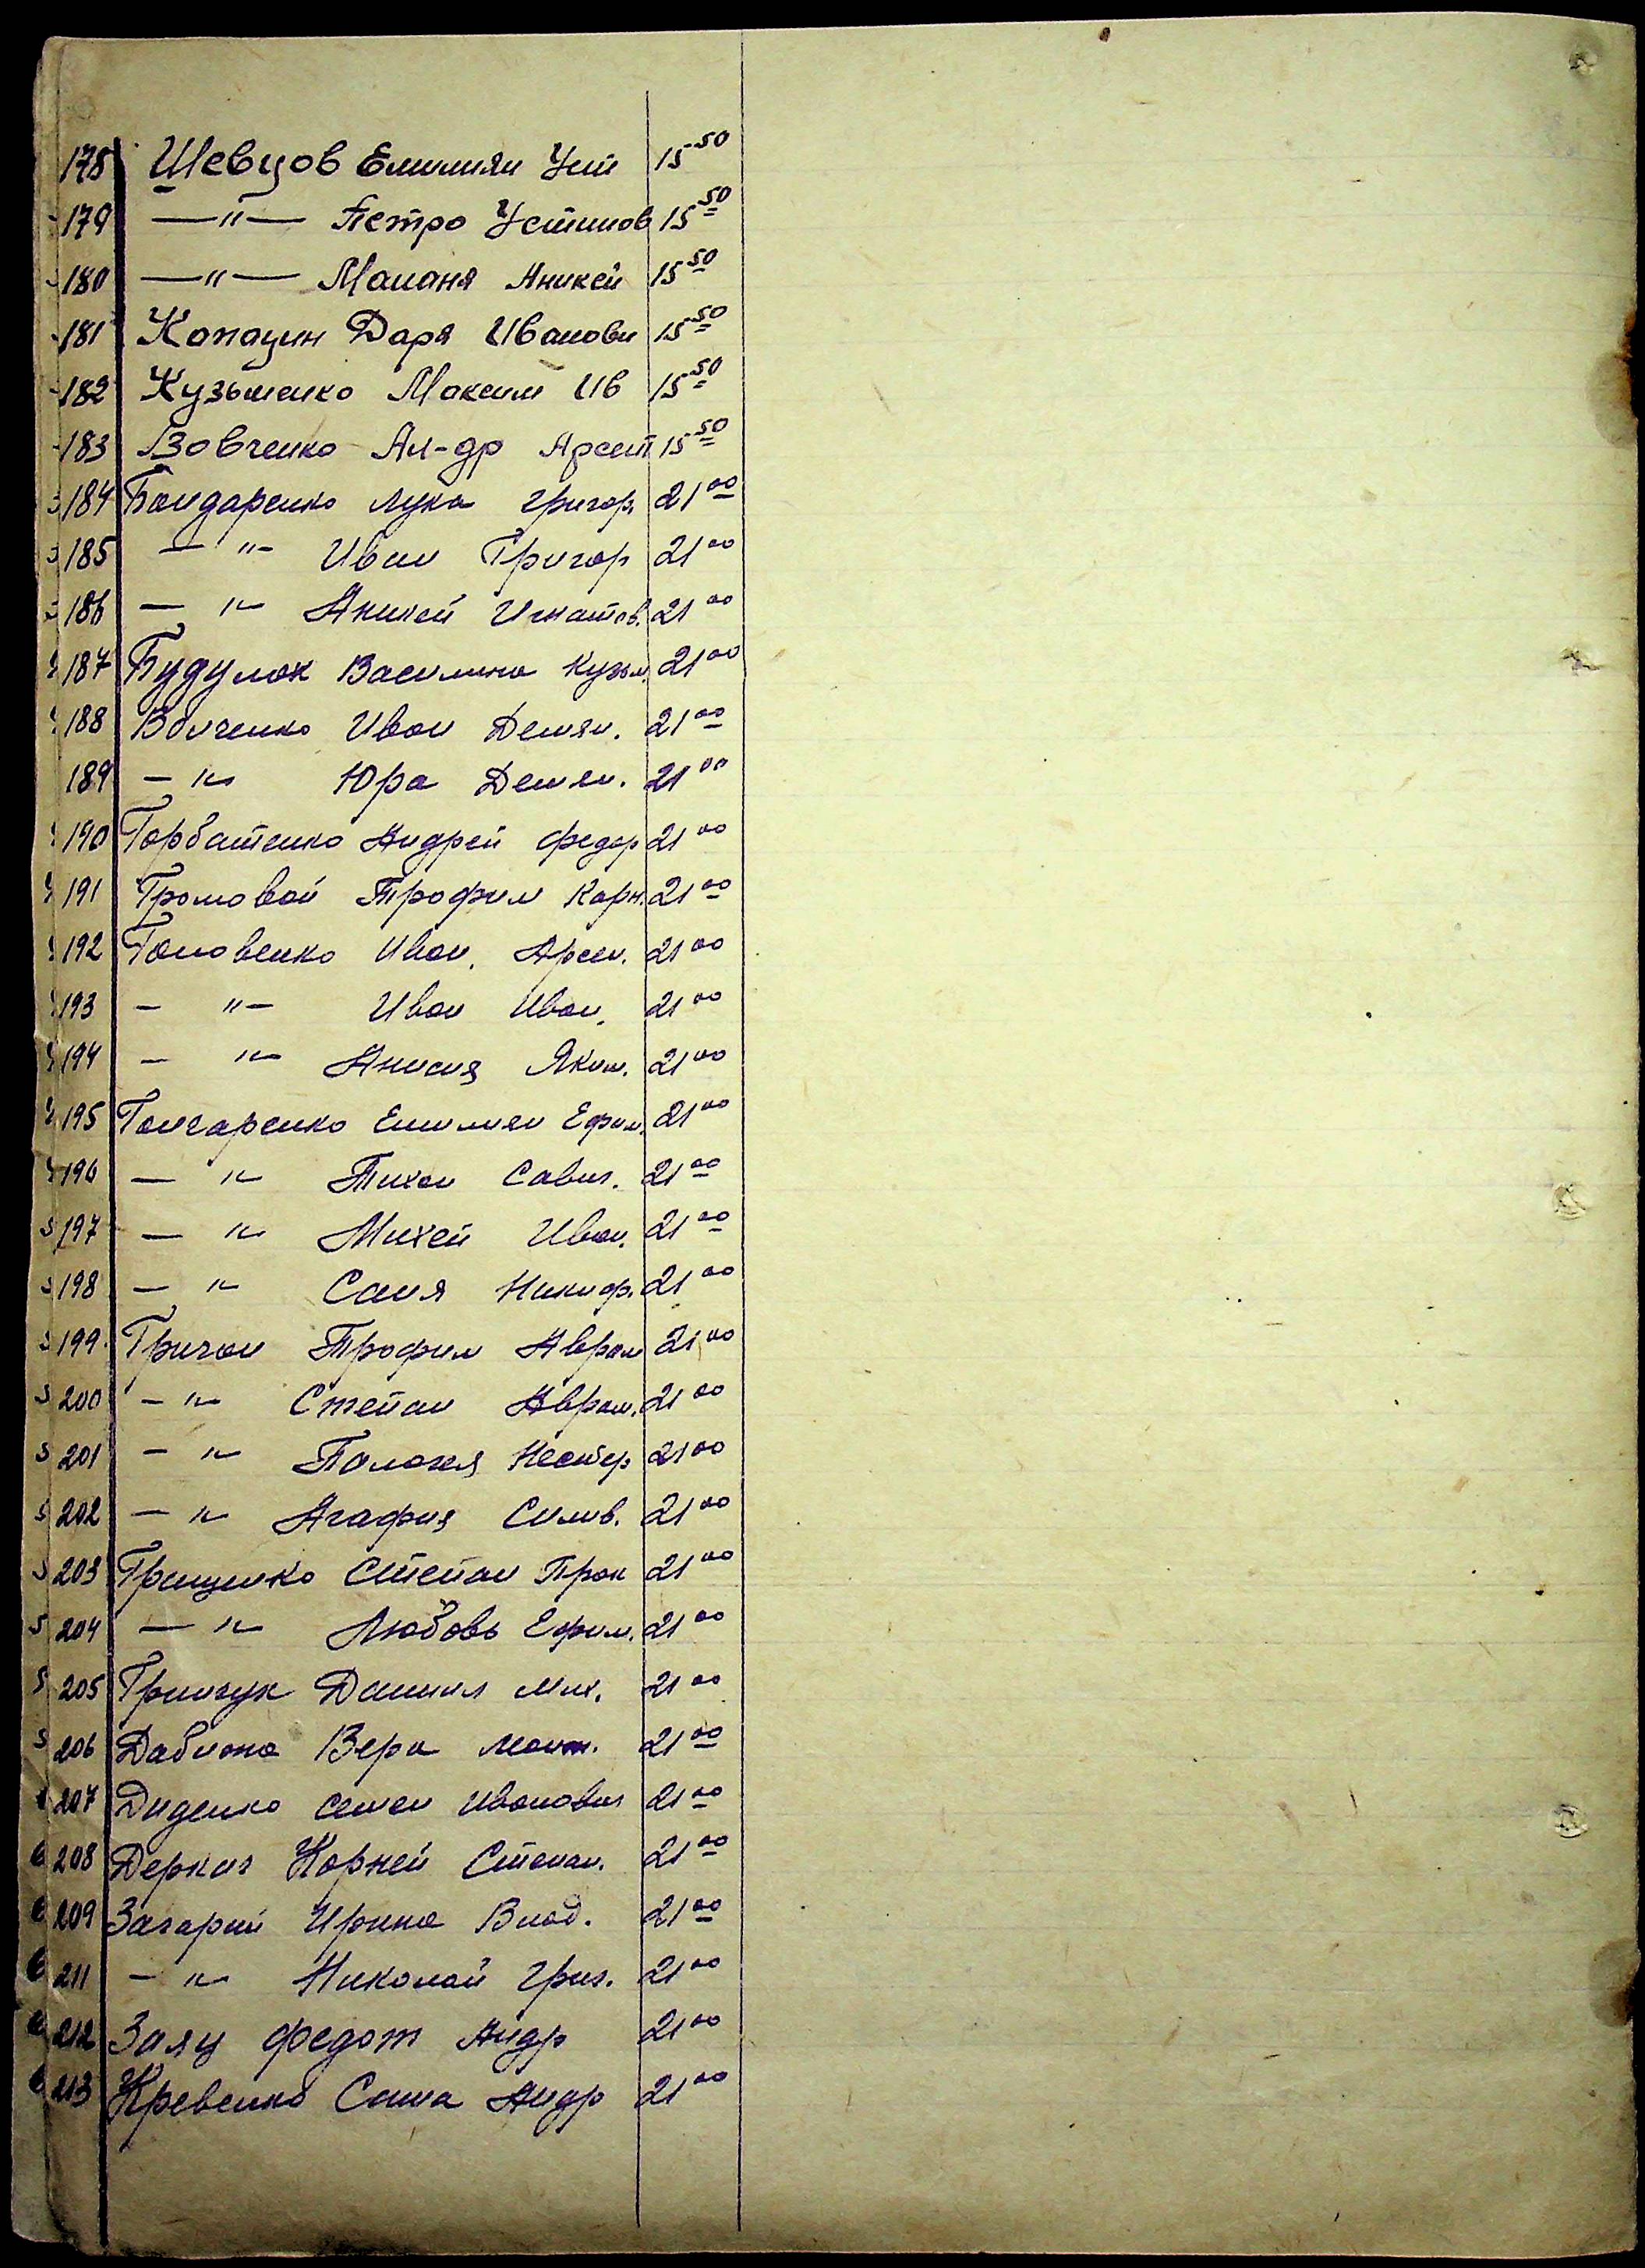 178 Шевцов Емилиян Уст 15 50
179 —"— Петро Устинов 15 50
180 —"— Маланя Аникей 15 50
181 Капацин Даря Иванови 15 50
182 Кузьменко Максим Ив 15 50
183 Вовченко Ал-др Арсент 15 50
184 Бондаренко Лука Григор. 21 00
185 — "— Иван Григор 21 00
186 — "— Аникей Игнатов. 21 00
187 Будулак Василина Кузьм. 21 00
188 Волченко Иван Демян. 21 00
189 — "— Юра Демян. 21 00
190 Горбатенко Андрей Федор 21 00
191 Громовой Трофим Карн. 21 00
192 Головенко Иван. Арсен. 21 00
193 — "— Иван Иван. 21 00
194 — "— Анисия Яким. 21 00
195 Гончаренко Емилиян Ефим. 21 00
196 — "— Тихон Савич. 21 00
197 — "— Михей Иван. 21 00
198 — "— Саня Никиф. 21 00
199 Тричан Трофим Аврам 21 00
200 — "— Степан Аврам. 21 00
201 — "— Палажя Нестер 21 00
202 — "— Агафия Силив. 21 00
203 Грищенко Степан Прок 21 00
204 — "— Любовь Ефим. 21 00
205 Гринчук Даниил Мих. 21 00
206 Вера 21 00
207 Диденко Семен Иванович 21 00
208 Деркач Корней Степан. 21 00
209 Загарий Ирина Влад. 21 00
211 — "— Николай Григ. 21 00
212 Заяц Федот Андр 21 00
213 Кревенко Саша Андр 21 00